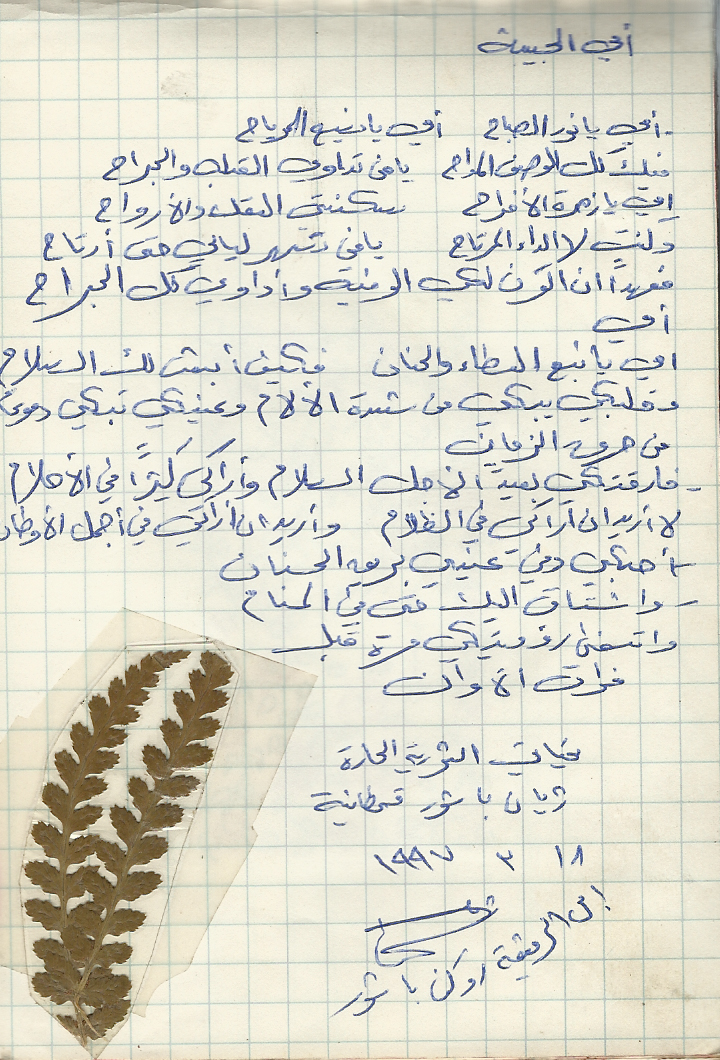 أمي الحبيبة
- أمي يا نور الصباح أمي يا ربيع الرياح
منك كل الوصف المزاح يا من تداوي القلب والجراح
إمي يا زهرة الأفراح سكنتي العقل والأرواح
ولنت لا الداء المرتاح يا من تسهر ليالي حتى أرتاح
فعهداً ان اكون لكي الوفية وأداوي كل الجراح
أمي
امي يا نبع العطاء والحنان فكيف أبعث لك السلام
وقلبكي يبكي من شدة الالام وعينيكي تبكي دموعاً
من حرقة الزمان
- فارقتكي بعيداً لأجل السلام وأراكي كثيراً في الأحلام
لا أريد ان أراكي في الظلام وأريد ان أراكي في أجمل الأوطان
- أحبكي وفي عيني بريق الحنان
- واشتاق اليك حتى في المنام
واتمنى رؤيتكي مرة قبل
فوات الأوان
تحياتي الثورية الحارة
ژيان باشور قحطانية
١٨ ٣ ١٩٩٧
الى الرفيقة اوكن باشور